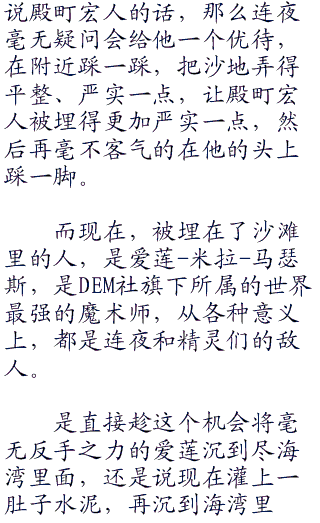 说殿町宏人的话，那么连夜
毫无疑问会给他一个优待，
在附近踩一踩，把沙地弄得
平整、严实一点，让殿町宏
人被埋得更加严实一点，然
后再毫不客气的在他的头上
踩一脚。
而现在，被埋在了沙滩
里的人，是爱莲-米拉-马瑟
斯，是DEM社旗下所属的世界
最强的魔术师，从各种意义
上，都是连夜和精灵们的敌
人。
是直接趁这个机会将毫
无反手之力的爱莲沉到尽海
湾里面，还是说现在灌上一
肚子水泥，再沉到海湾里